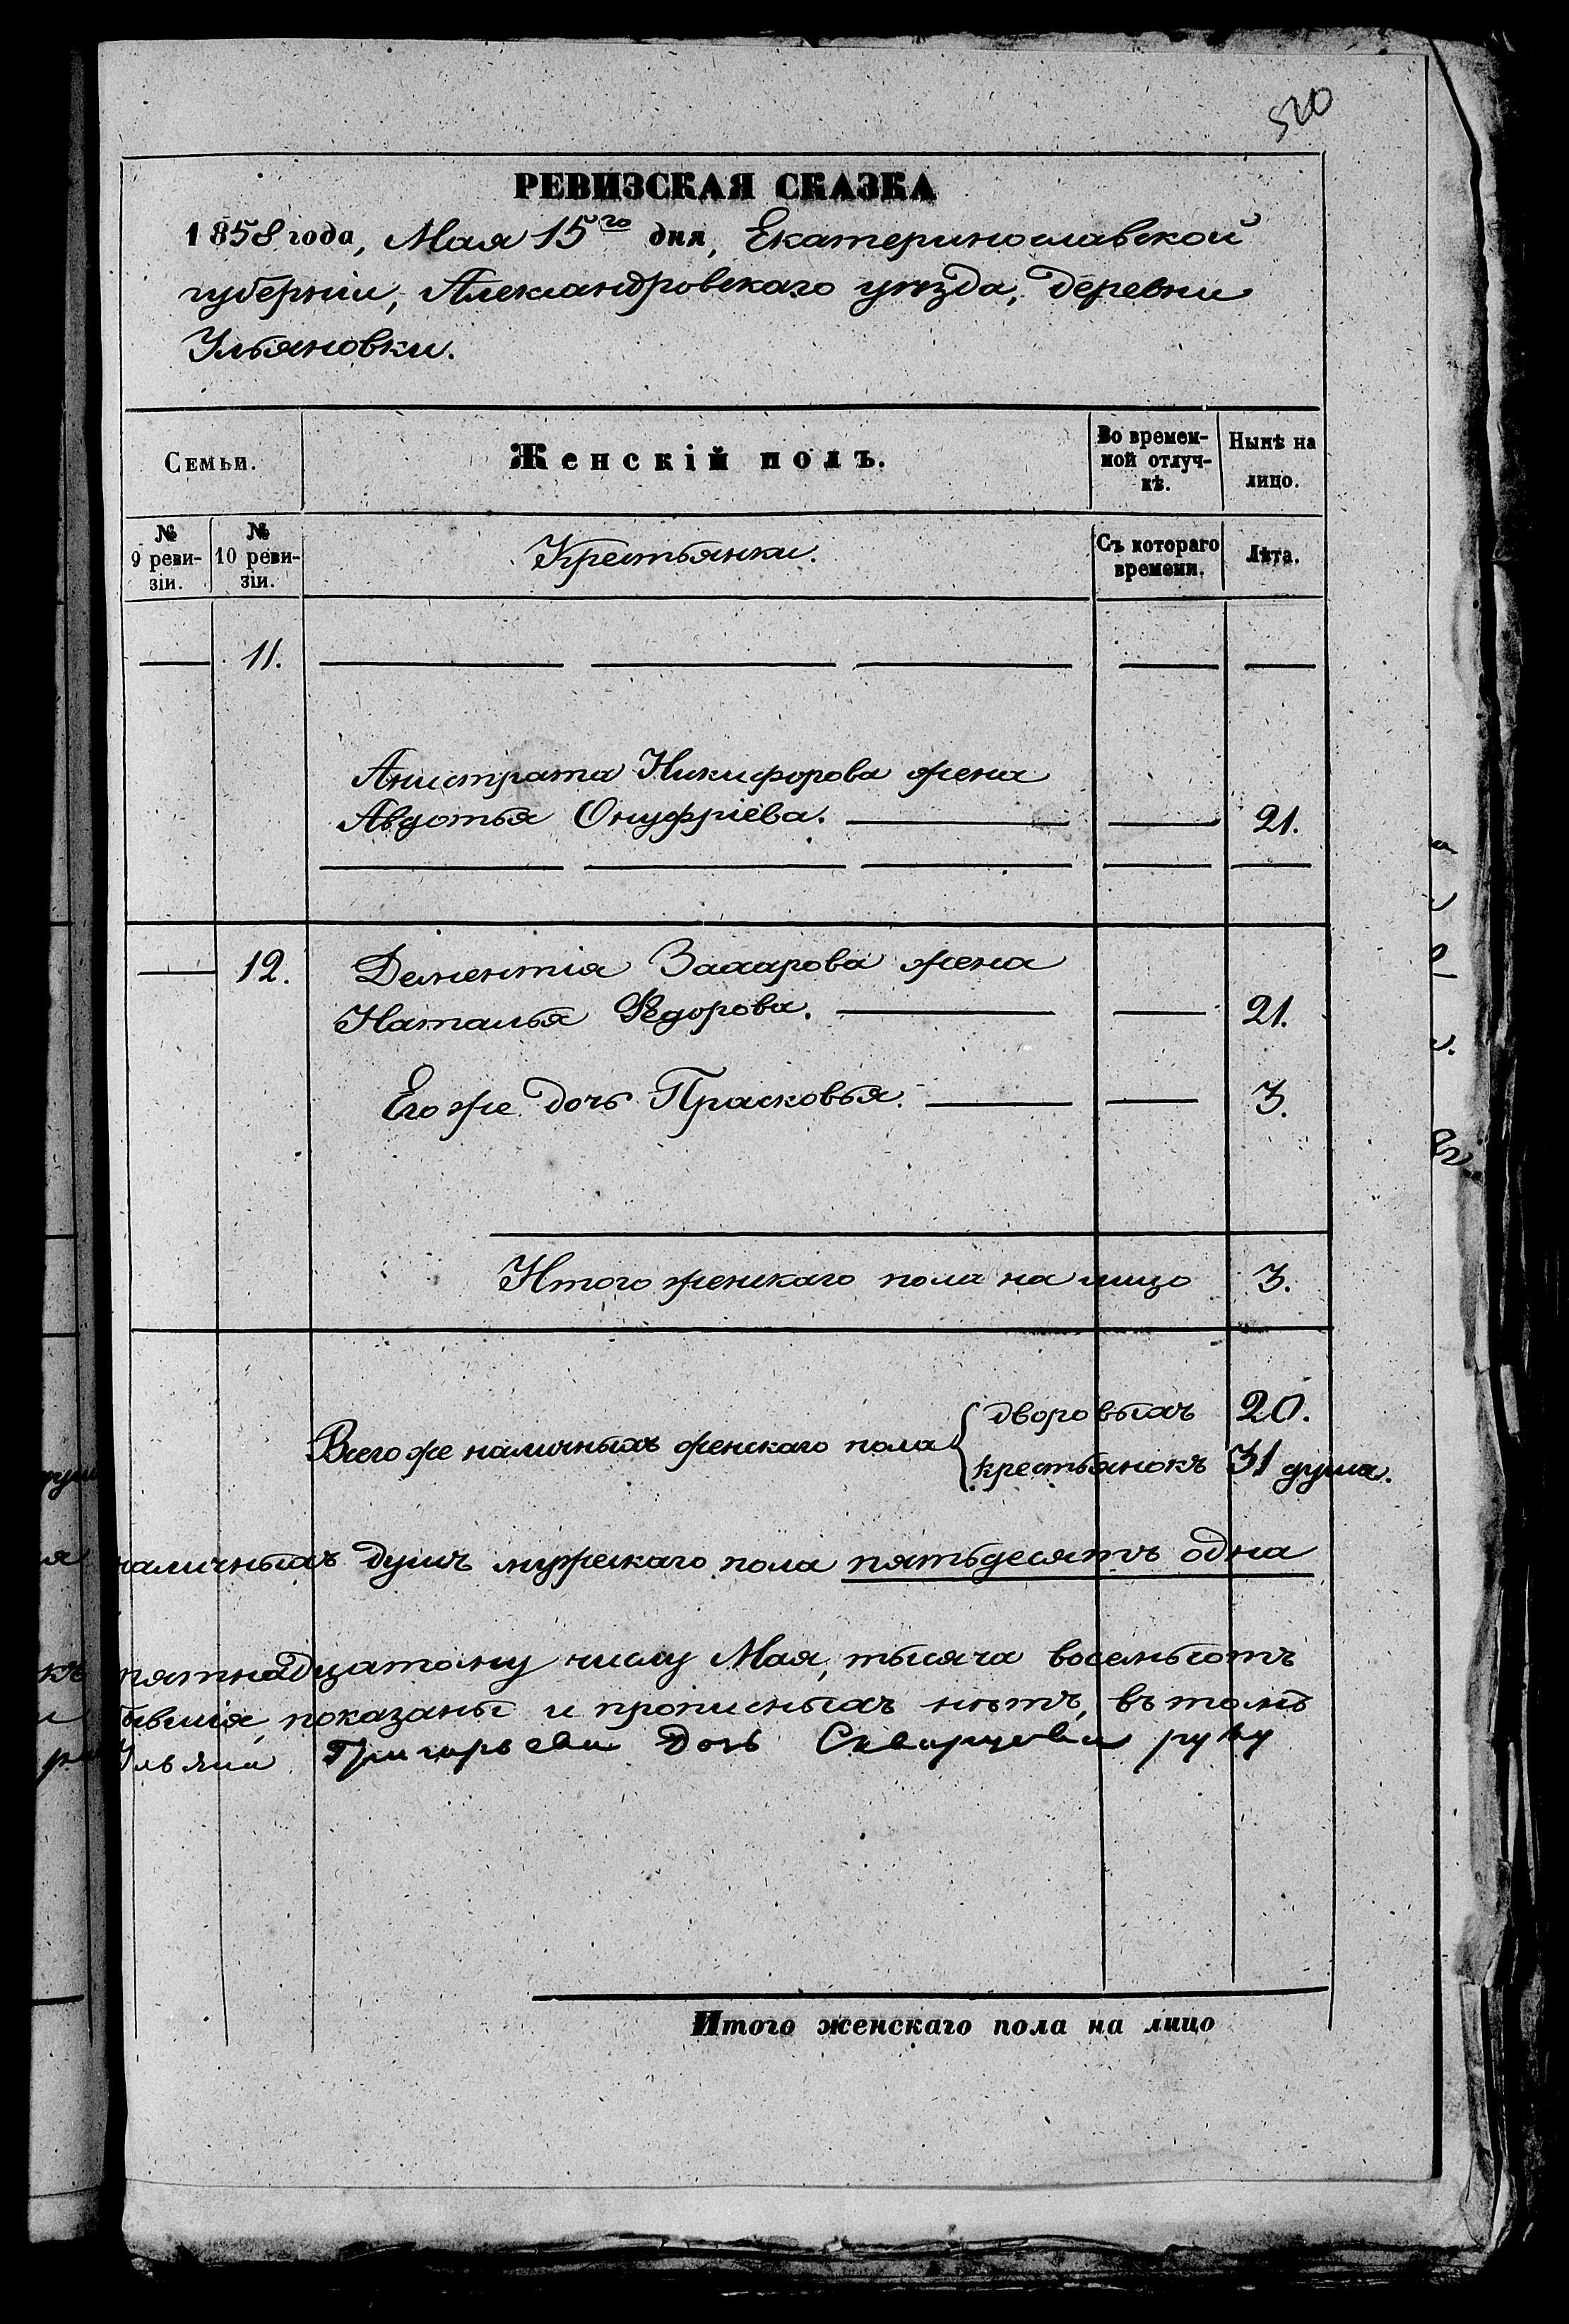 520
РЕВИЗСКАЯ СКАЗКА
1858 года, Мая 15го дня, Екатеринославской
губерніи, Александровскаго уѣзда, деревни
Ульяновки.
Семьи.
Женскій полъ.
Во времен-
ной отлуч-
кѣ.
Нынѣ на
лицо.
№
9 реви-
зіи.
№
10 реви-
зіи.
Крестьянки.
Съ котораго
времени.
Лѣта.
11.
Анистрата Никифорова жена
Авдотья Онуфріева. 21.
12. Дементія Захарова жена
Наталья Федорова. 21.
Его же дочь Прасковья. 3.
Итого женскаго пола на лицо 3.
Всего же наличныхъ женскаго пола
дворовыхъ 20.
крестьянокъ 31 душа.
наличныхъ душъ мужескаго пола пятьдесятъ одна
къ пятнадцатому числу Мая, тысяча восемьсотъ
показаны и прописныхъ нѣтъ, въ томъ
Григорьева дочь руку
Итого женскаго пола на лицо